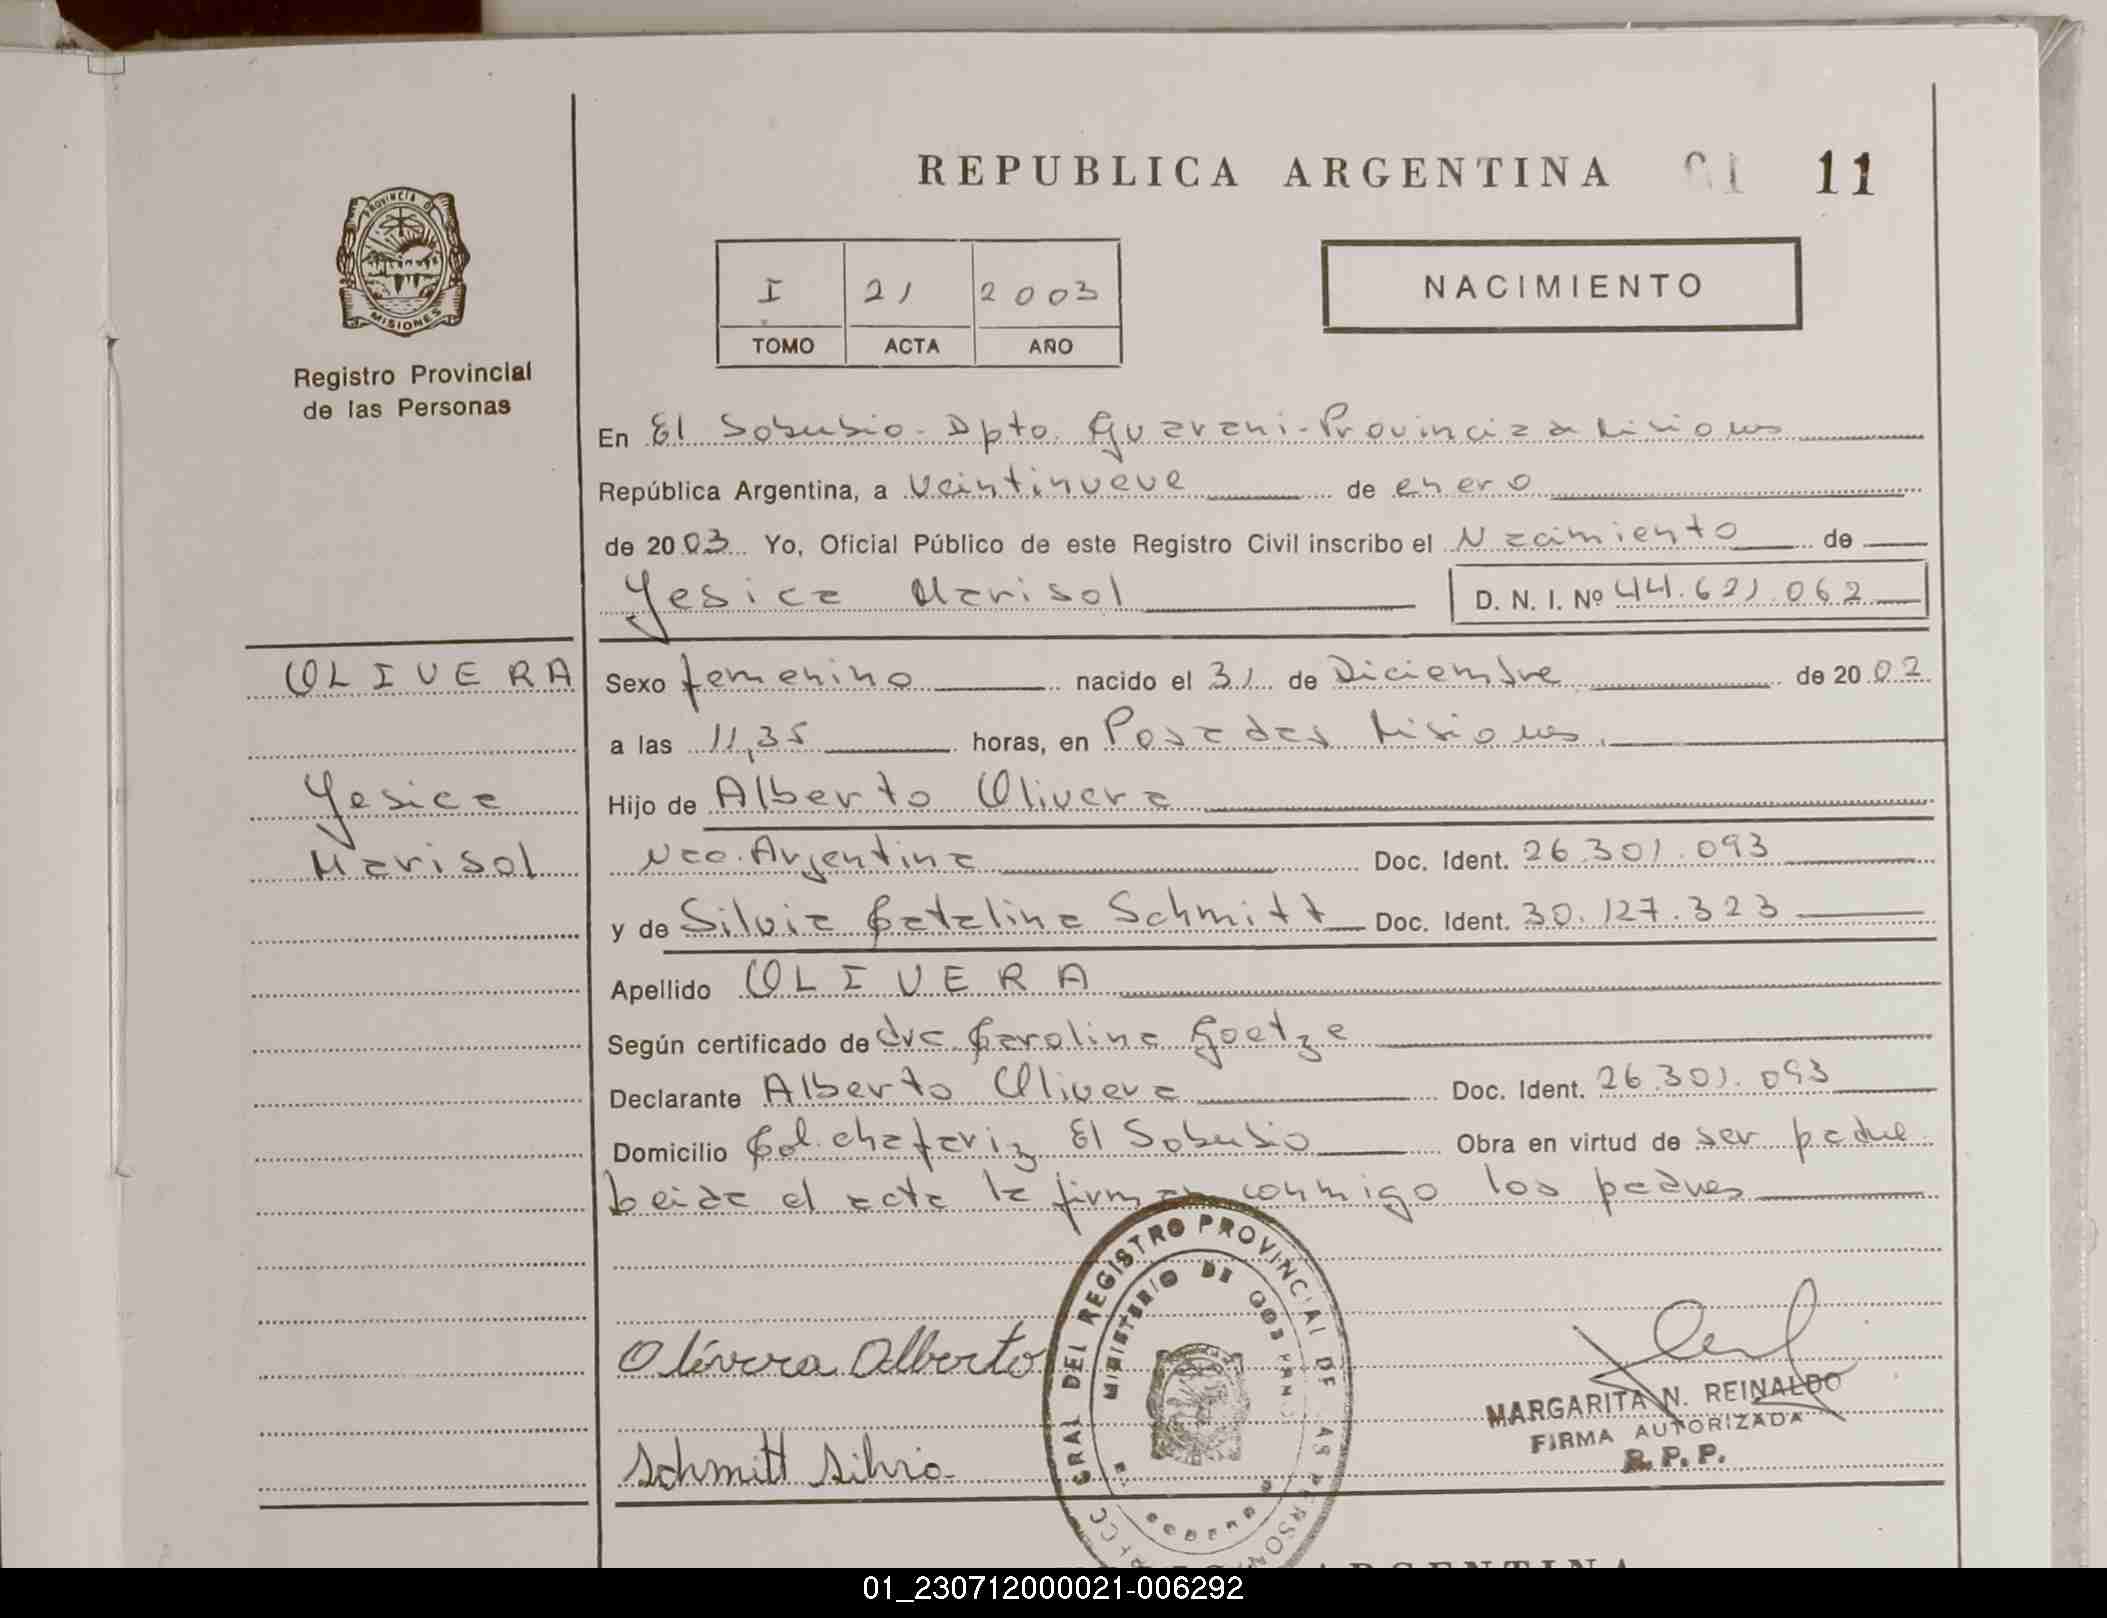 REPUBLICA ARGENTINA 01 11
PROVINCIA DE
MISIONES
Registro Provincial
de las Personas
NACIMIENTO
I 21 2003
TOMO ACTA AÑO
En El Soberbio - Dpto. Guarani - Provincia de Misiones
República Argentina, a veintinueve de enero
de 2003 Yo, Oficial Público de este Registro Civil inscribo el Nacimiento de
Yesica Marisol D. N. I. Nº 44.621.062
OLIVERA
Yesica
Marisol
Sexo femenino nacido el 31 de Diciembre de 2002
a las 11,35 horas, en Posadas Misiones.
Hijo de Alberto Olivera
Nac. Argentina Doc. Ident. 26.301.093
y de Silvia Catalina Schmitt Doc. Ident. 30.127.323
Apellido OLIVERA
Según certificado de dra. Carolina Goetze
Declarante Alberto Olivera Doc. Ident. 26.301.093
Domicilio Col. chafariz El Soberbio Obra en virtud de ser padre
Leida el acta la firman conmigo los padres
GRAL DEL REGISTRO PROVINCIAL DE LAS PERSON
MINISTERIO DE GOBIERNO
Olivera Alberto
Schmitt Silvia
MARGARITA N. REINALDO
FIRMA AUTORIZADA
R. P. P.
ARGENTINA
01_230712000021-006292